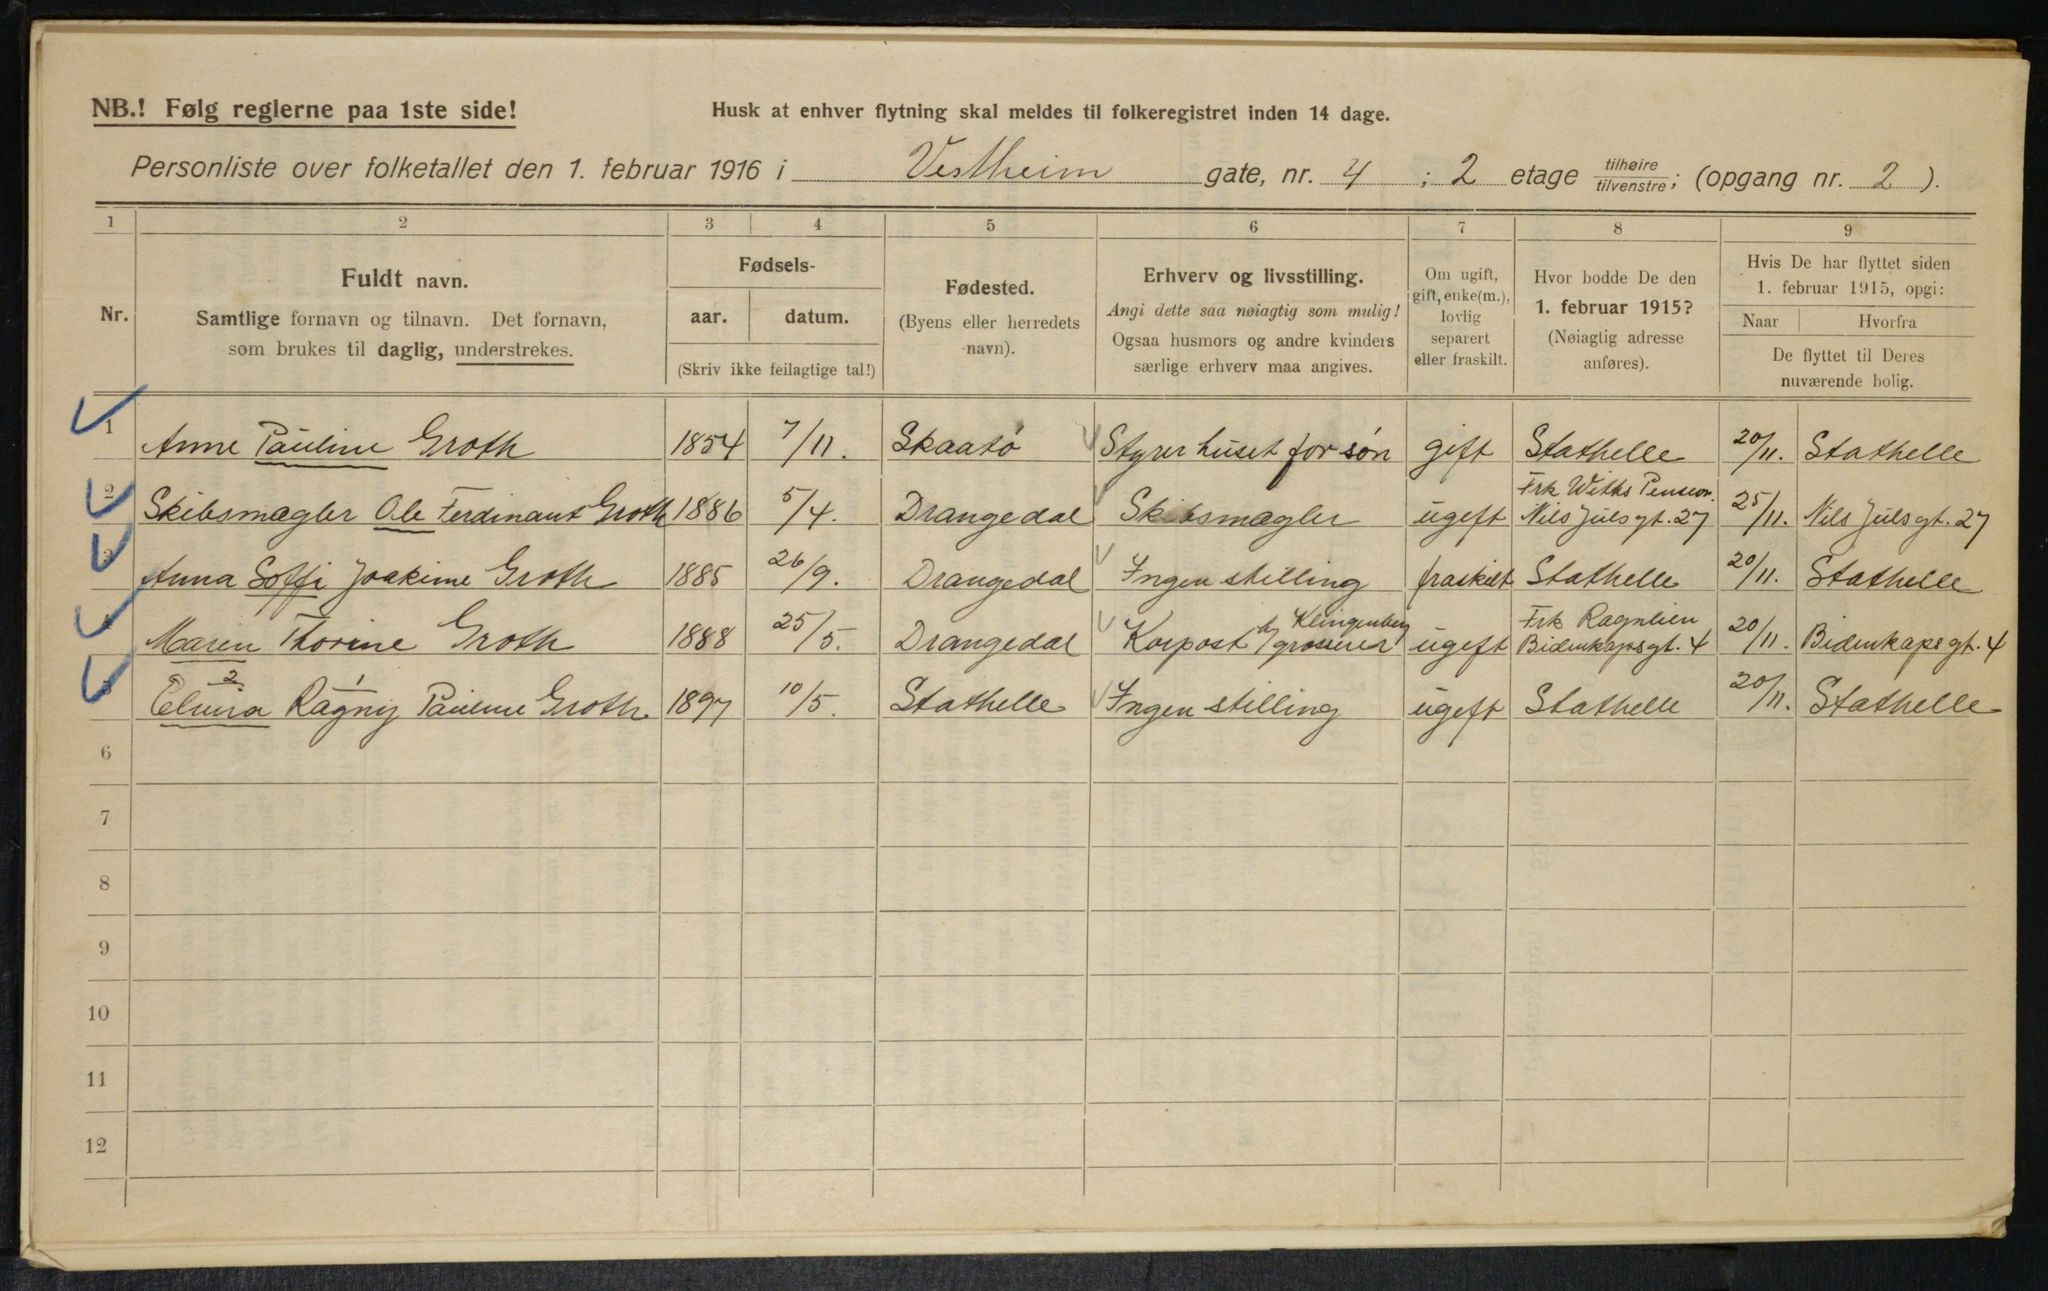 NB.! Følg reglerne paa 1ste side!
Husk at enhver flytning skal meldes til folkeregistret inden 14 dage.
Personliste over folketallet den 1. februar 1916 i Vestheim gate, nr. 4 ; 2 etage tilhøire/tilvenstre; (opgang nr. 2 ).
1 2 3 4 5 6 7 8 9
Nr.
Fuldt navn.
Samtlige fornavn og tilnavn. Det fornavn,
som brukes til daglig, understrekes.
Fødsels-
aar. datum.
(Skriv ikke feilagtige tal!)
Fødested.
(Byens eller herredets
navn).
Erhverv og livsstilling.
Angi dette saa nøiagtig som mulig!
Ogsaa husmors og andre kvinders
særlige erhverv maa angives.
Om ugift,
gift, enke(m.),
lovlig
separert
eller fraskilt.
Hvor bodde De den
1. februar 1915?
(Nøiagtig adresse
anføres).
Hvis De har flyttet siden
1. februar 1915, opgi:
Naar Hvorfra
De flyttet til Deres
nuværende bolig.
1 Anne Pauline Groth 1854 7/11. Skaatø Styrer huset for søn gift Stathelle 20/11. Stathelle
2 Skibsmægler Ole Ferdinant Groth 1886 5/4. Drangedal Skibsmægler ugift Frk Withs Pension. Nils Juls gt. 27 25/11. Nils Juls gt. 27
3 Anna Soffi Joakime Groth 1885 26/9. Drangedal Ingen stilling fraskilt Stathelle 20/11. Stathelle
4 Maren Thorine Groth 1888 25/5. Drangedal Korpost Klingenberg grosserer ugift Frk Ragnlien Bidenkaps gt. 4 20/11. Bidenkaps gt. 4
2 1
5 Elvira Ragny Pauline Groth 1897 10/5. Stathelle Ingen stilling ugift Stathelle 20/11. Stathelle
6
7
8
9
10
11
12